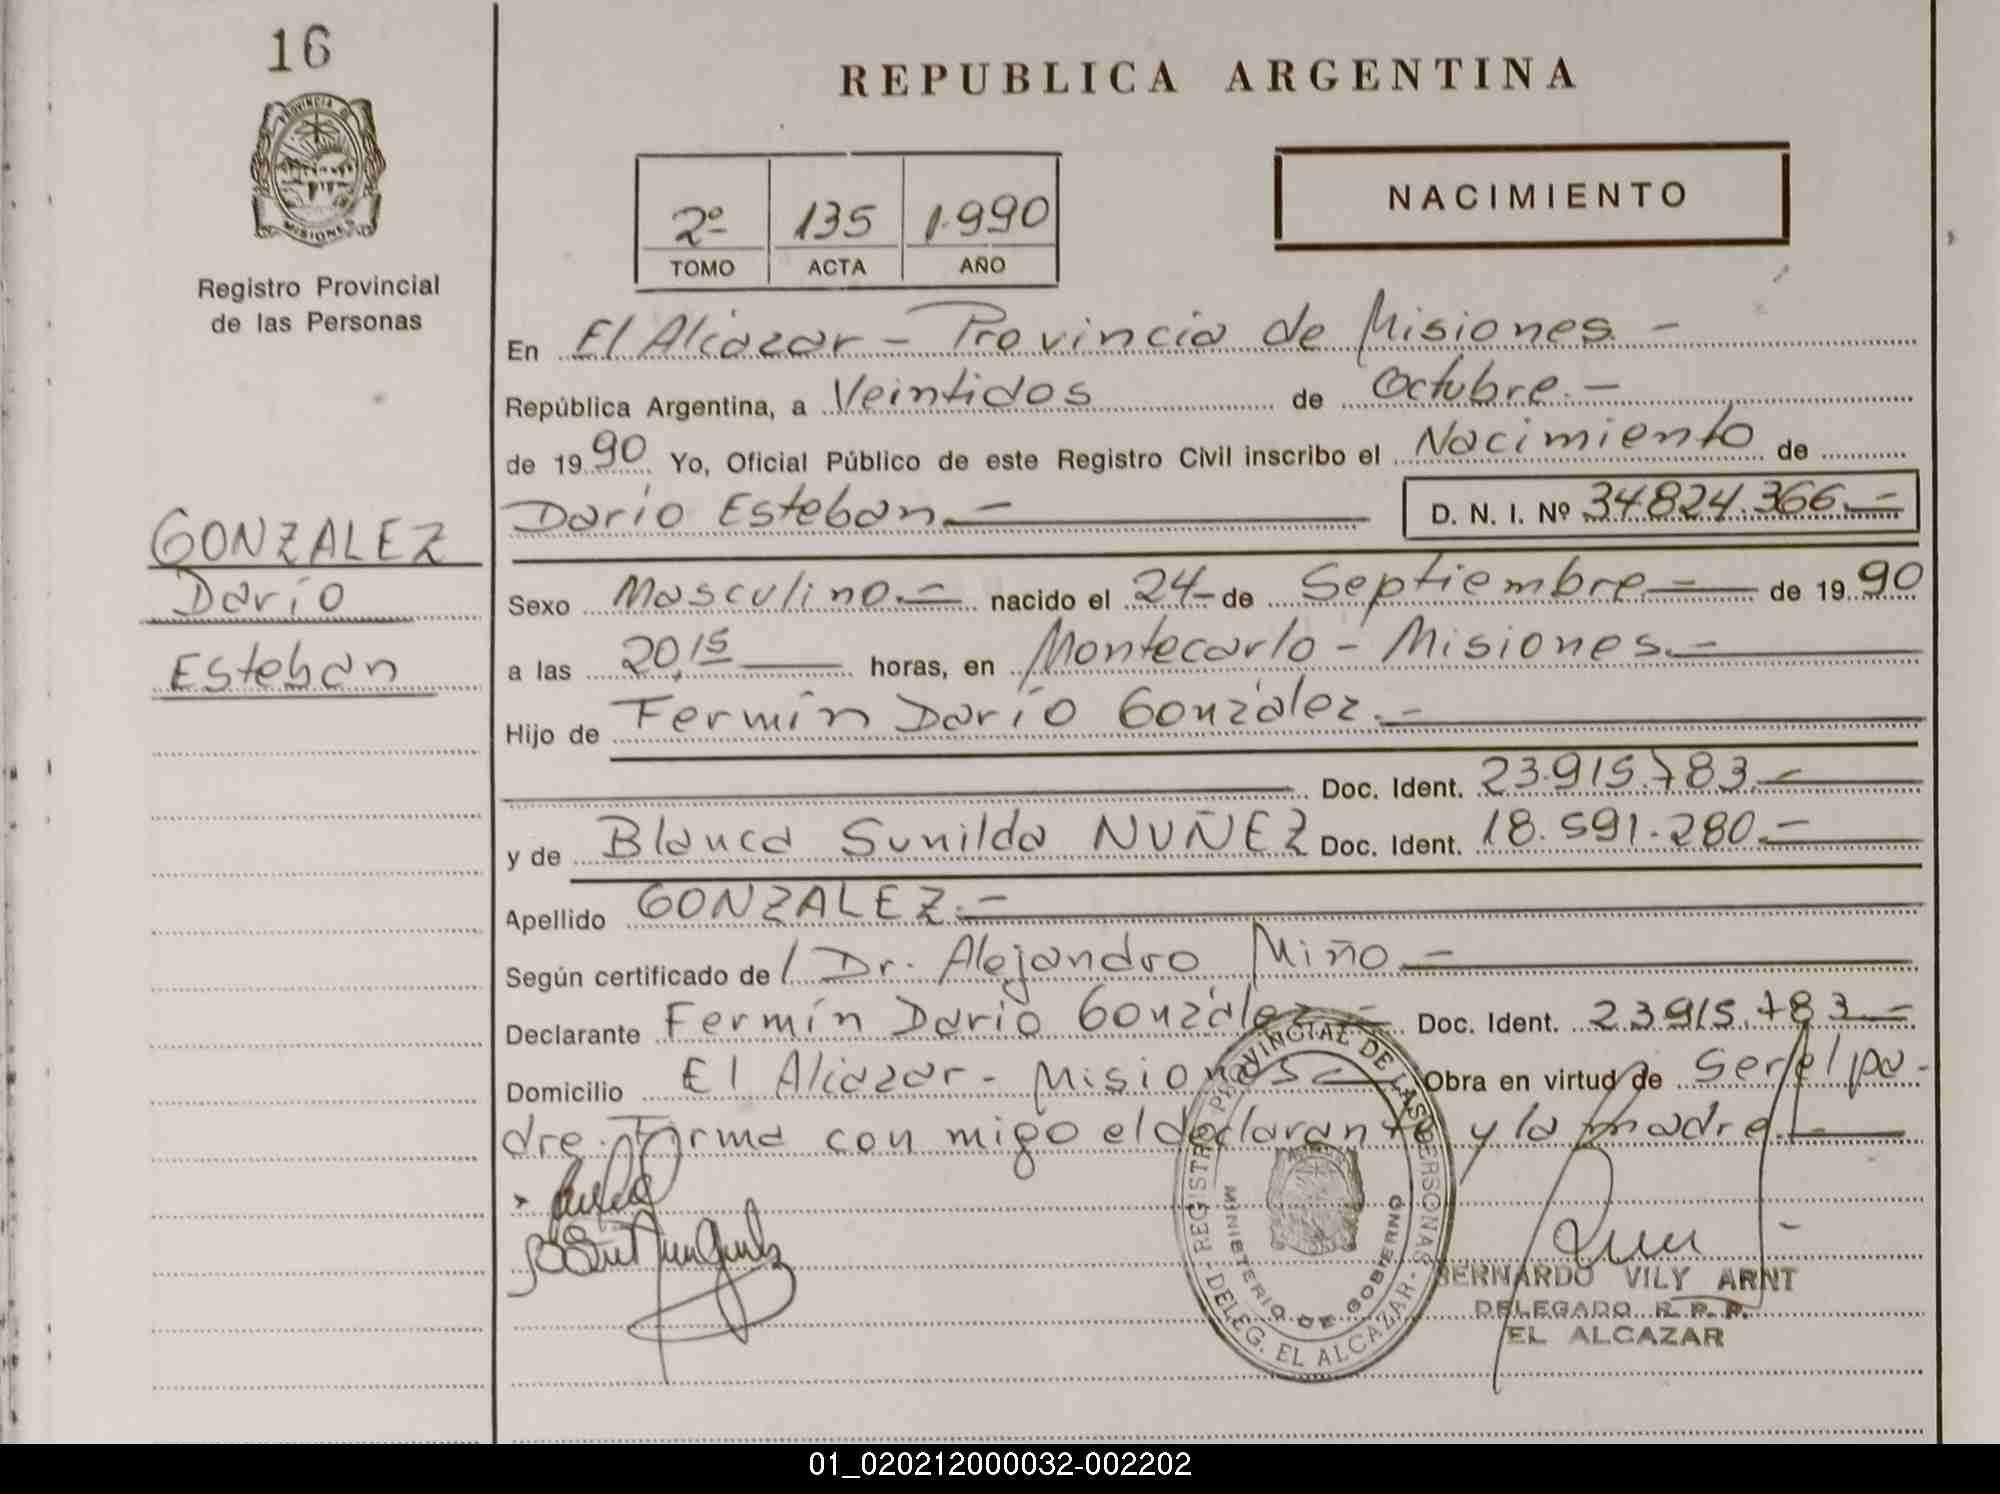 16
PROVINCIA DE
MISIONES
Registro Provincial
de las Personas
GONZALEZ
Darío
Esteban
REPUBLICA ARGENTINA
2º 135 1.990
TOMO ACTA AÑO
NACIMIENTO
En El Alcazar - Provincia de Misiones -
República Argentina, a Veintidos de Octubre. -
de 1990 Yo, Oficial Público de este Registro Civil inscribo el Nacimiento de
Darío Esteban. - D. N. I. Nº 34824.366. -
Sexo Masculino. - nacido el 24- de Septiembre - de 1990
a las 20,15 horas, en Montecarlo - Misiones. -
Hijo de Fermín Darío González. -
Doc. Ident. 23.915.783. -
y de Blanca Sunilda NUÑEZ Doc. Ident. 18.591.280. -
Apellido GONZALEZ. -
Según certificado de / Dr. Alejandro Miño -
Declarante Fermín Darío González - Doc. Ident. 23915.783 -
Domicilio El Alcazar - Misiones - Obra en virtud de ser el pa-
dre. Firma con migo el declarante y la madre. -
REGISTRO PROVINCIAL DE LAS PERSONAS
MINISTERIO DE GOBIERNO
- DELEG. EL ALCAZAR -
BERNARDO VILY ARNT
DELEGADO R. P. P.
EL ALCAZAR
01_020212000032-002202